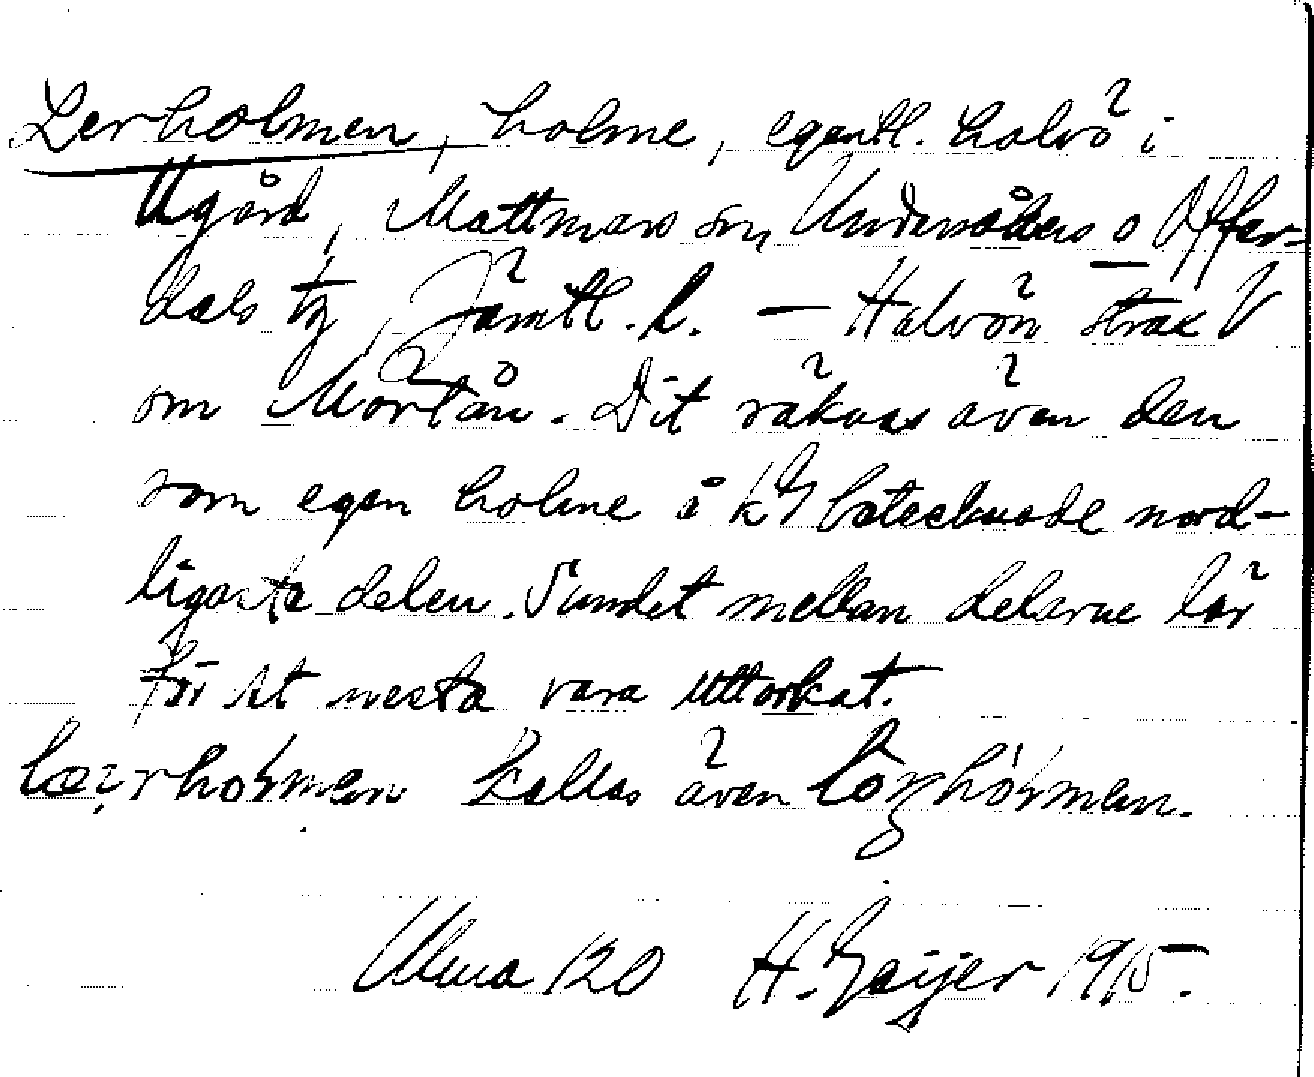 Lerholmen, holme, egentl. halvö i
Ugård, Mattmars sn, Undersåkers o Offer-
dals tg, Jämtl. l. — Halvön strax V
om Mörtån. Dit räknas även den
som egen holme å kG betecknade nord-
ligaste delen. Sundet mellan delarne lär
för det mesta vara uttorkat.
kallas även
Ulma 120 H. Geijer 1915.